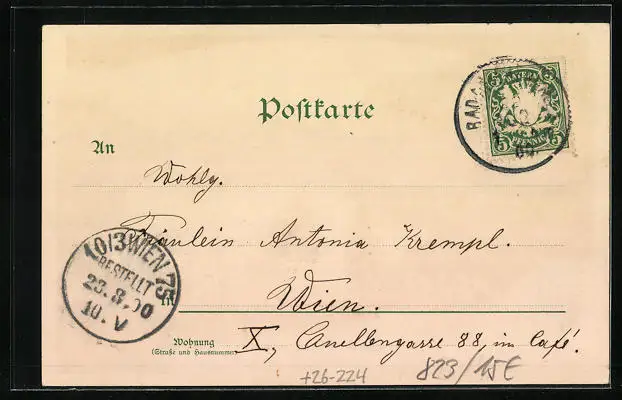 Postkarte
5 BAYERN 5
5 PFENNIG 5
BAD
An
Wohlg.
Fräulein Antonia Krempl.
in Wien.
Wohnung
(Straße und Hausnummer)
X, Quellengasse 88, im Café.
10/3 WIEN 75
BESTELLT
23.8.00
10. V
+26-224
823/15E